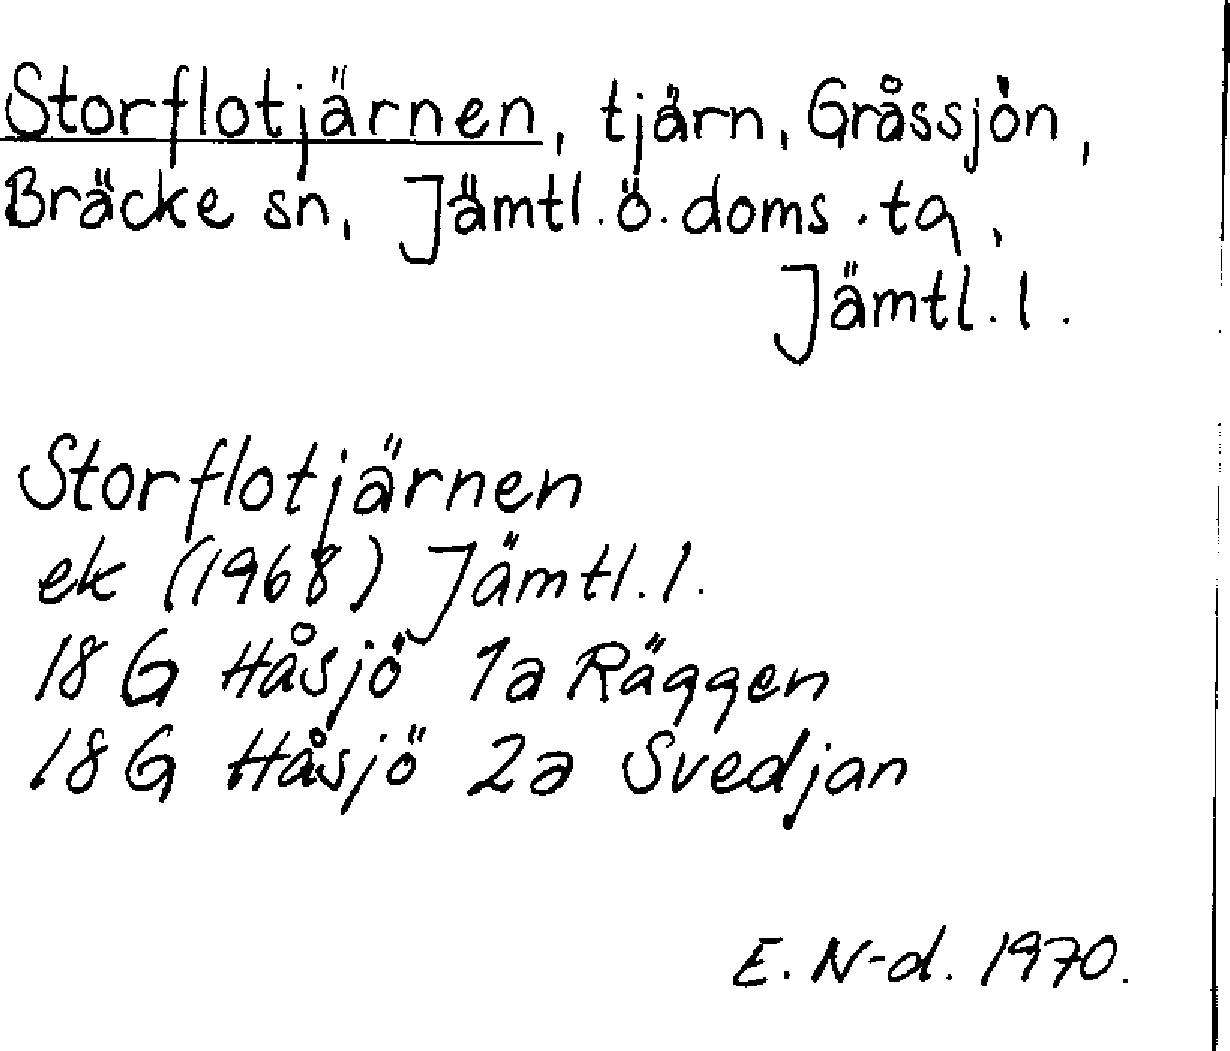 Storflotjärnen, tjärn, Gråssjön,
Bräcke sn, Jämtl. ö. doms. tg,
Jämtl. l.
Storflotjärnen
ek (1968) Jämtl. l.
18 G Håsjö 1a Räggen
18 G Håsjö 2a Svedjan
E. N-d. 1970.